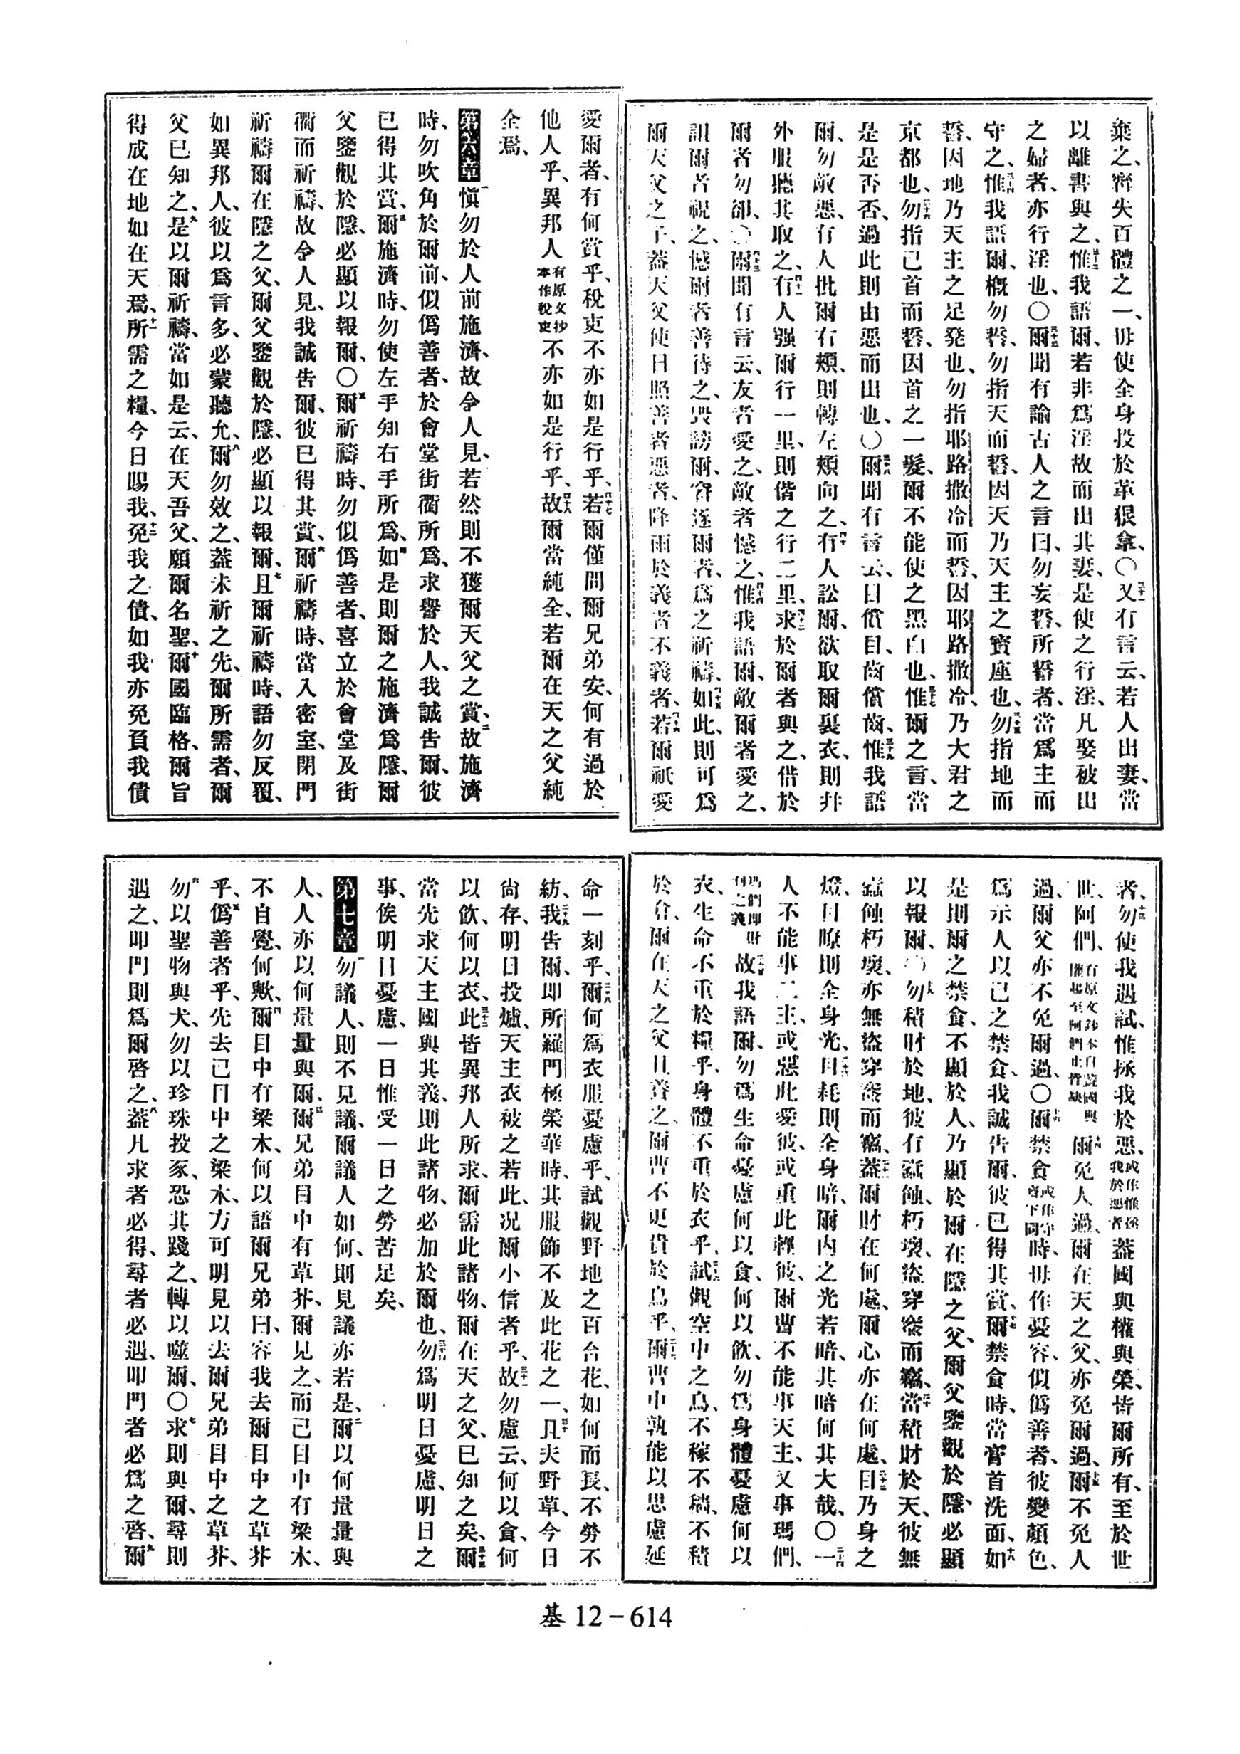 棄之、寧失百體之一、毋使全身投於革很拿、〇又有言云、若人出妻、當
以離書與之、惟我語爾、若非爲淫故而出其妻、是使之行淫、凡娶被出
之婦者、亦行淫也、〇爾聞有諭古人之言曰、勿妄誓、所誓者、當爲主而
守之、惟我語爾、槪勿誓、勿指天而誓、因天乃天主之寶座也、勿指地而
誓、因地乃天主之足凳也、勿指耶路撒冷而誓、因耶路撒冷、乃大君之
京都也、勿指己首而誓、因首之一髮、爾不能使之黑白也、惟爾之言、當
是是否否、過此則由惡而出也、〇爾聞有言云、目償目、齒償齒、惟我語
爾、勿敵惡、有人批爾右頰、則轉左頰向之、有人訟爾、欲取爾裏衣、則幷
外服聽其取之、有人强爾行一里、則偕之行二里、求於爾者與之、借於
爾者勿卻、〇爾聞有言云、友者愛之、敵者憾之、惟我語爾、敵爾者愛之、
詛爾者祝之、憾爾者善待之、毀謗爾、窘逐爾者、爲之祈禱、如此、則可爲
爾天父之子、蓋天父使日照善者惡者、降雨於義者不義者、若爾祇愛
愛爾者、有何賞乎、稅吏不亦如是行乎、若爾僅問爾兄弟安、何有過於
他人乎、異邦人有原文抄本作稅吏不亦如是行乎、故爾當純全、若爾在天之父純
全焉、
第六章愼勿於人前施濟、故令人見、若然則不獲爾天父之賞、故施濟
時、勿吹角於爾前、似僞善者、於會堂街衢所爲、求譽於人、我誠吿爾、彼
已得其賞、爾施濟時、勿使左手知右手所爲、如是則爾之施濟爲隱、爾
父鑒觀於隱、必顯以報爾、〇爾祈禱時、勿似僞善者、喜立於會堂及街
衢而祈禱、故令人見、我誠吿爾、彼已得其賞、爾祈禱時、當入密室、閉門
祈禱爾在隱之父、爾父鑒觀於隱、必顯以報爾、且爾祈禱時、語勿反覆、
如異邦人、彼以爲言多、必蒙聽允、爾勿效之、蓋未祈之先、爾所需者、爾
父已知之、是以爾祈禱、當如是云、在天吾父、願爾名聖、爾國臨格、爾旨
得成在地如在天焉、所需之糧、今日賜我、免我之債、如我亦免負我債
者、勿使我遇試、惟拯我於惡、或作惟拯我於惡者蓋國與權與榮、皆爾所有、至於世
世、阿們、有原文鈔本自蓋國與權起至阿們止皆缺爾免人過、爾在天之父、亦免爾過、爾不免人
過、爾父亦不免爾過、〇爾禁食或作守齋下同時、毋作憂容、似僞善者、彼變顏色、
爲示人以己之禁食、我誠吿爾、彼已得其賞、爾禁食時、當膏首洗面、如
是則爾之禁食、不顯於人、乃顯於爾在隱之父、爾父鑒觀於隱、必顯
以報爾、〇勿積財於地、彼有蠹蝕、朽壞、盜穿窬而竊、當積財於天、彼無
蠹蝕朽壞、亦無盜穿窬而竊、蓋爾財在何處、爾心亦在何處、目乃身之
燈、目瞭則全身光、目眊則全身暗、爾內之光若暗、其暗何其大哉、〇一
人不能事二主、或惡此愛彼、或重此輕彼、爾曹不能事天主、又事瑪們、
瑪們卽財利之義故我語爾、勿爲生命憂慮何以食、何以飮、勿爲身體憂慮何以
衣、生命不重於糧乎、身體不重於衣乎、試觀空中之鳥、不稼不穡、不積
於倉、爾在天之父且養之、爾曹不更貴於鳥乎、爾曹中孰能以思慮延
命一刻乎、爾何爲衣服憂慮乎、試觀野地之百合花、如何而長、不勞不
紡、我吿爾、卽所羅門極榮華時、其服飾不及此花之一、且夫野草、今日
尙存、明日投爐、天主衣被之若此、况爾小信者乎、故勿慮云、何以食、何
以飮、何以衣、此皆異邦人所求、爾需此諸物、爾在天之父、已知之矣、爾
當先求天主國與其義、則此諸物、必加於爾也、勿爲明日憂慮、明日之
事、俟明日憂慮、一日惟受一日之勞苦足矣、
第七章勿議人、則不見議、爾議人如何、則見議亦若是、爾以何量量與
人、人亦以何量量與爾、爾兄弟目中有草芥、爾見之、而己目中有梁木、
不自覺、何歟、爾目中有梁木、何以語爾兄弟曰、容我去爾目中之草芥
乎、僞善者乎、先去己目中之梁木、方可明見以去爾兄弟目中之草芥、
勿以聖物與犬、勿以珍珠投豕、恐其踐之、轉以噬爾、〇求則與爾、尋則
遇之、叩門則爲爾啓之、蓋凡求者必得、尋者必遇、叩門者必爲之啓、爾
基 12-614